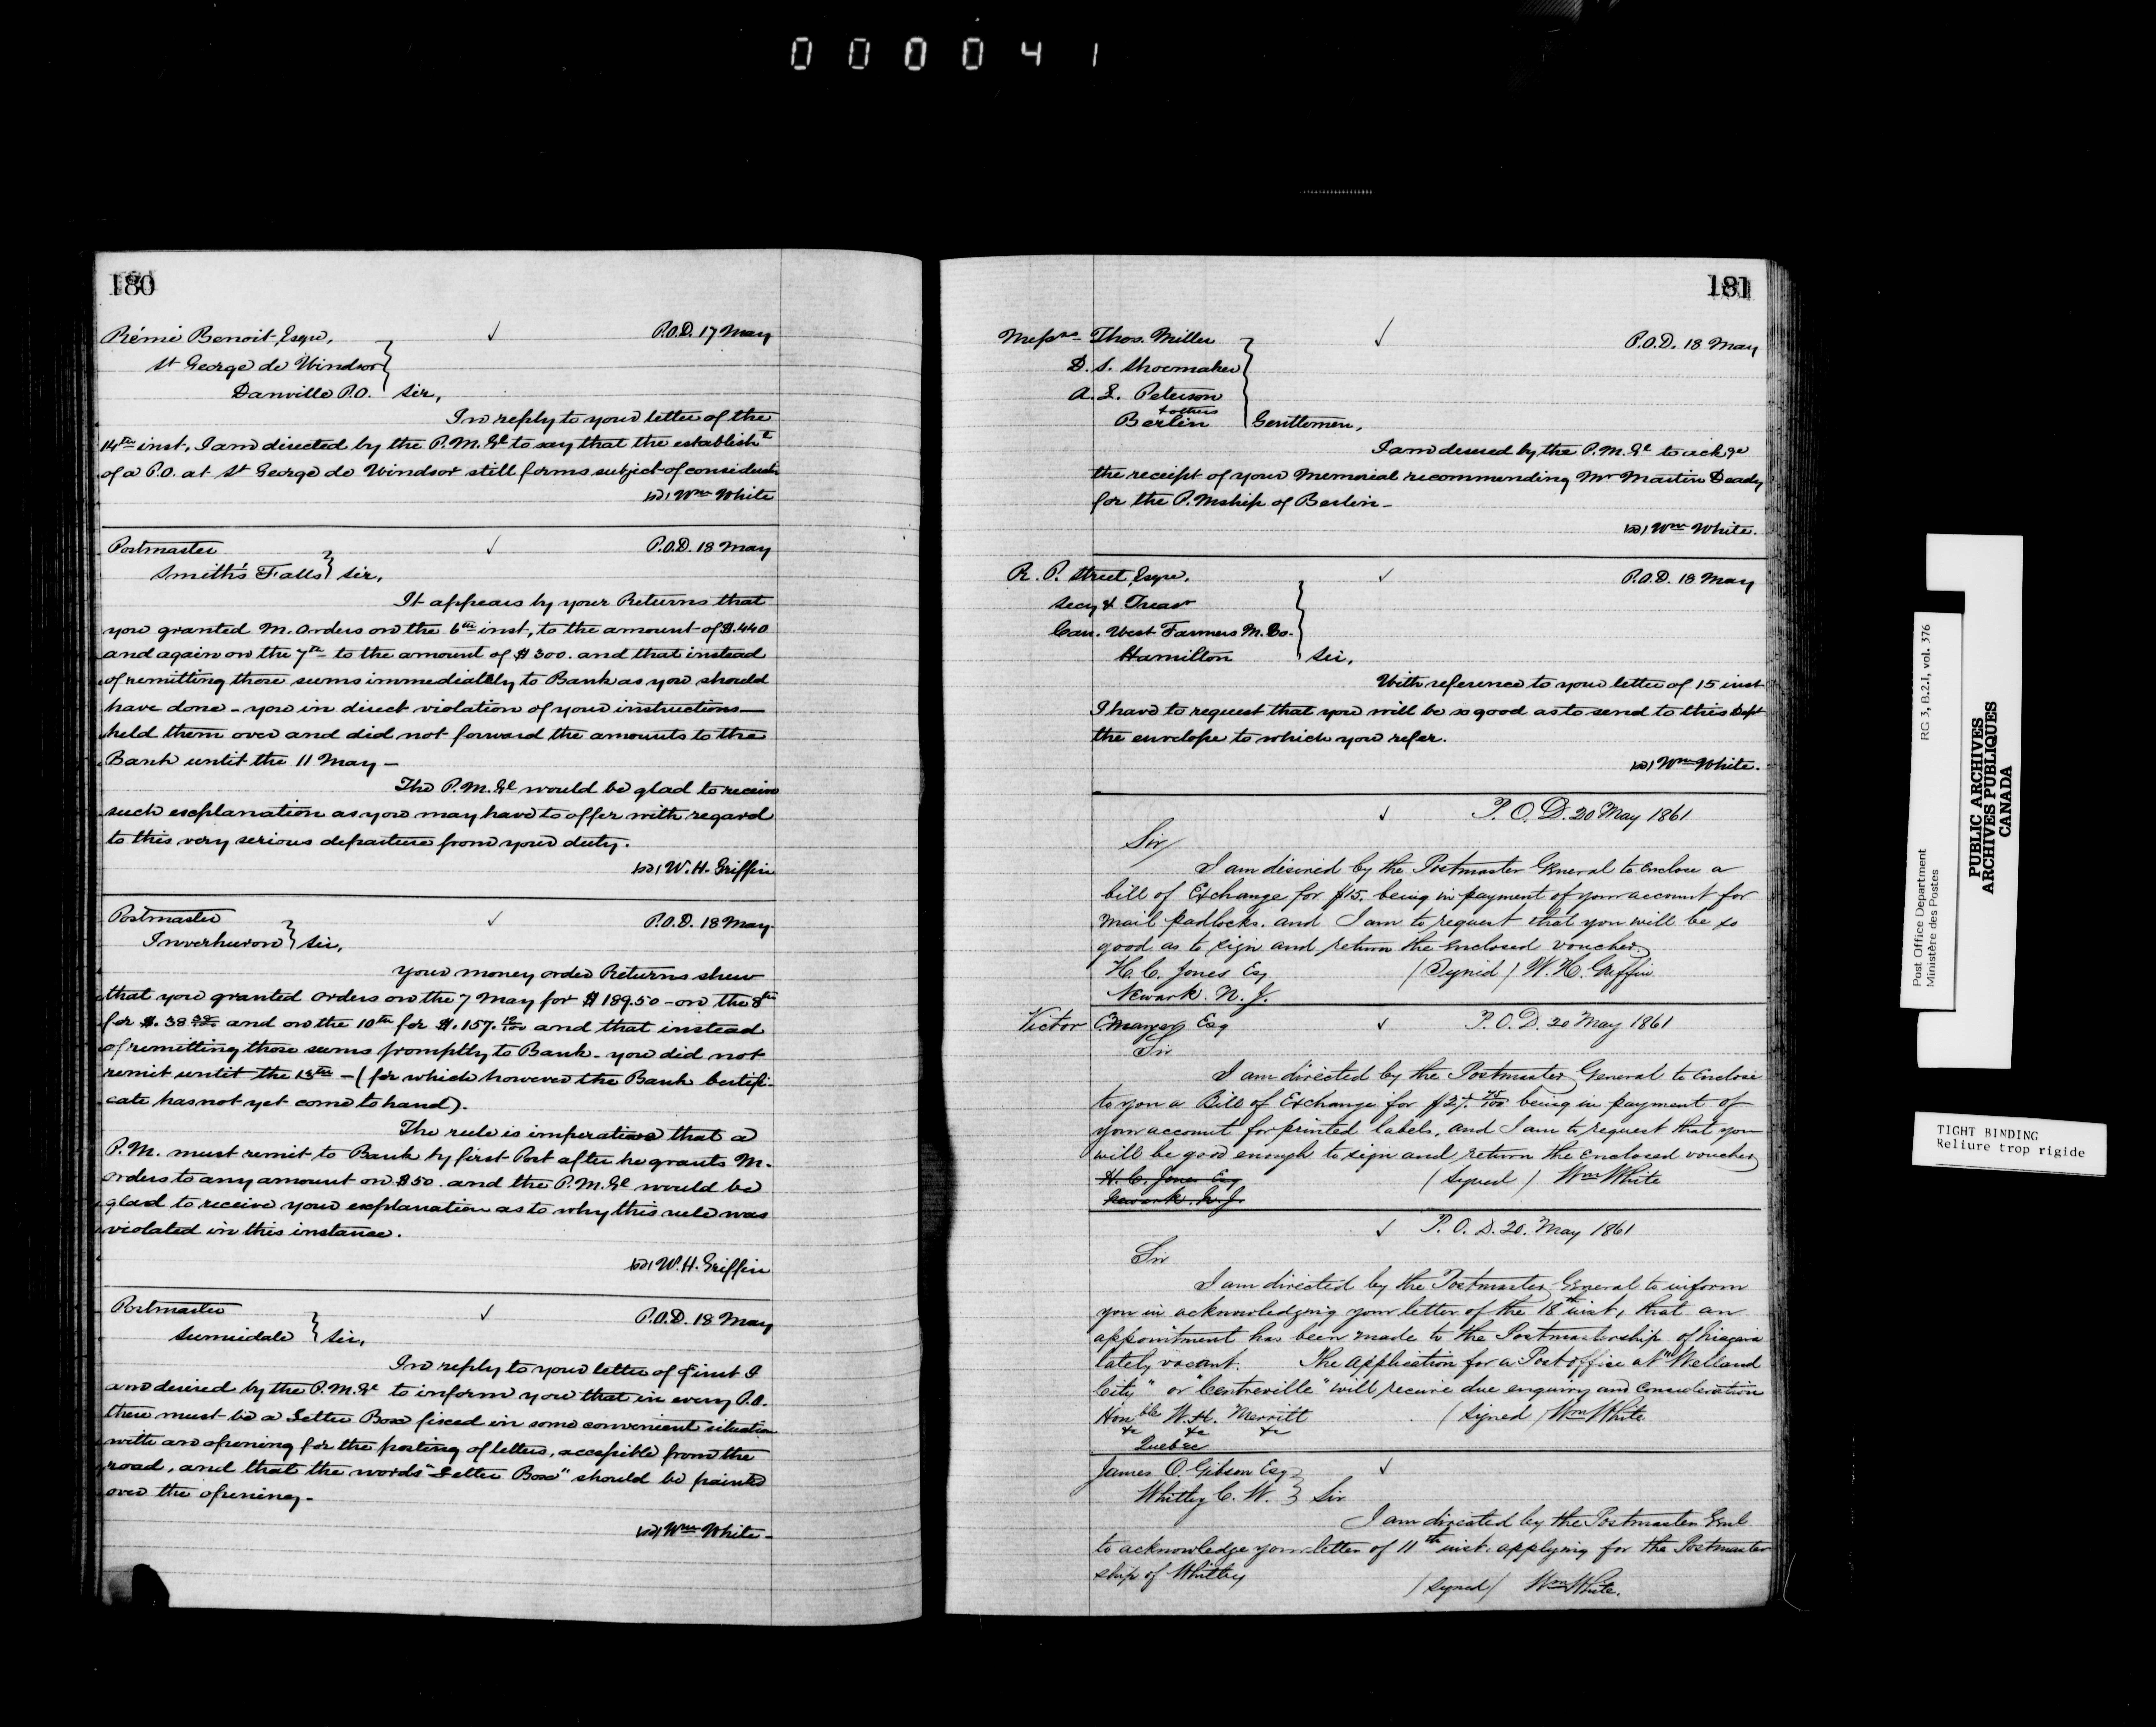 000041
180
Rémi Benoit, Esqre, P.O.D. 17 May
St George de Windsor
Danville P.O. Sir,
In reply to your letter of the
14th inst, I am directed by the P.M.Gl to say that the establisht
of a P.O. at St George de Windsor still forms subject of consideratn
(sd) Wm White
Postmaster P.O.D. 18 May
Smith's Falls Sir,
It appears by your Returns that
you granted M. Orders on the 6th inst, to the amount of $.440
and again on the 7th to the amount of $300. and that instead
of remitting those sums immediately to Bank as you should
have done - you in direct violation of your instructions—
held them over and did not forward the amounts to the
Bank until the 11 May—
The P.M.Gl would be glad to receive
such explanation as you may have to offer with regard
to this very serious departure from your duty.
(sd) W.H. Griffin
Postmaster P.O.D. 18 May.
Inverhuron Sir,
Your money order Returns shew
that you granted Orders on the 7 May for $189.50 - on the 8th
for $.38 and on the 10th for $.157. 12/100 and that instead
of remitting those sums promptly to Bank - you did not
remit until the 13th - (for which however the Bank Certifi-
cate has not yet come to hand).
The rule is imperative that a
P.M. must remit to Bank by first Post after he grants M.
Orders to any amount on $50. and the P.M.Gl would be
glad to receive your explanation as to why this rule was
violated in this instance.
(sd) W.H. Griffin
Postmaster P.O.D. 18 May
Sunnidale Sir,
In reply to your letter of inst I
am desired by the P.M.Gl to inform you that in every P.O.
there must be a Letter Box fixed in some convenient situation
with an opening for the posting of letters, accessible from the
road, and that the words "Letter Box" should be painted
over the opening-
(sd) Wm White-
181
Messrs Thos. Miller P.O.D. 18 May
D. S. Shoemaker
A. L. Peterson
& others
Berlin Gentlemen,
I am desired by the P.M.Gl to ackge
the receipt of your Memorial recommending Mr Martin Deady
for the P.Mship of Berlin-
(sd) Wm White.
R. P. Street, Esqre, P.O.D. 18 May
Secy & Treasr
Can. West Farmers M. Co.
Hamilton Sir,
With reference to your letter of 15 inst
I have to request that you will be so good as to send to this Dept
the envelope to which you refer.
(sd) Wm White.
P.O.D. 20 May 1861
Sir/
I am desired by the Postmaster General to Enclose a
bill of Exchange for $15. being in payment of your account for
Mail padlocks. and I am to request that you will be so
good as to sign and return the enclosed voucher
H. C. Jones Esq. (Signed) W. H. Griffin
Newark. N. J.
Victor Esq P.O.D. 20 May 1861
Sir
I am directed by the Postmaster General to Enclose
to you a Bill of Exchange for $27. 75/100 being in payment of
your account for printed labels, and I am to request that you
will be good enough to sign and return the enclosed voucher
H. C. Jones Esq (Signed) Wm White
Newark. N. J.
P. O. D. 20. May 1861
Sir
I am directed by the Postmaster General to inform
you in acknowledging your letter of the 18th inst, that an
appointment has been made to the Postmastership of Niagara
lately vacant. The application for a Post office at "Welland
City" or "Centreville" will receive due enquiry and consideration
Honble W. H. Merritt (Signed) Wm White
&c &c &c
Quebec
James O. Gibson Esq
Whitby C. W. Sir
I am directed by the Postmaster Genl
to acknowledge your letter of 11th inst. applying for the Postmaster
ship of Whitby
(Signed) Wm White.
Post Office Department RG 3, B.2.I, vol. 376
Ministère des Postes
PUBLIC ARCHIVES
ARCHIVES PUBLIQUES
CANADA
TIGHT BINDING
Reliure trop rigide